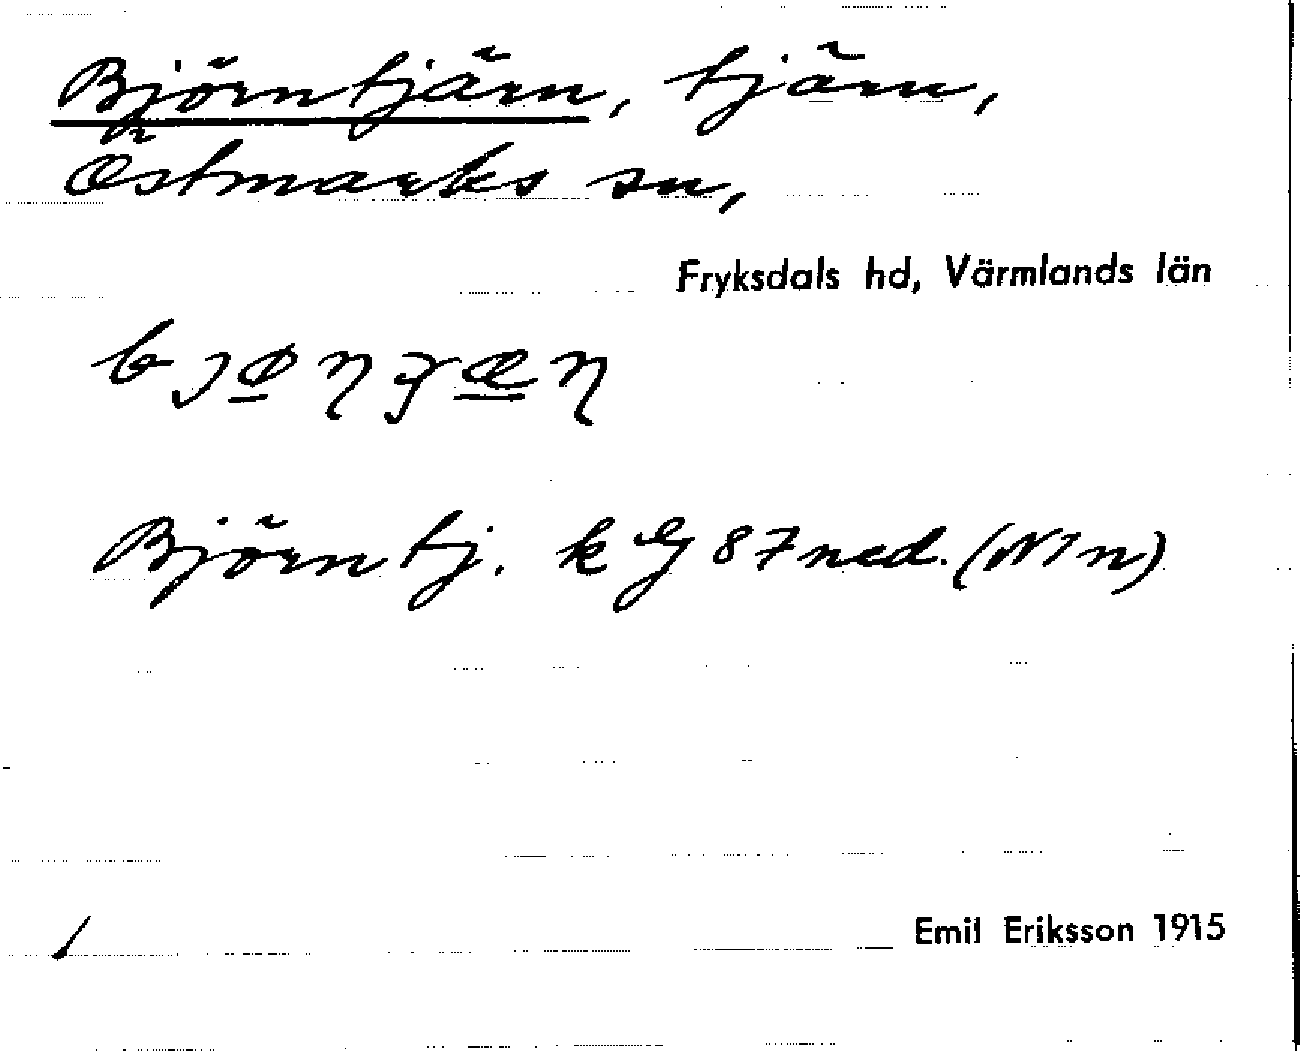 Björntjärn, tjärn,
Östmarks sn,
Fryksdals hd, Värmlands län
Björntj. k 87 ned. (N1n)
Emil Eriksson 1915